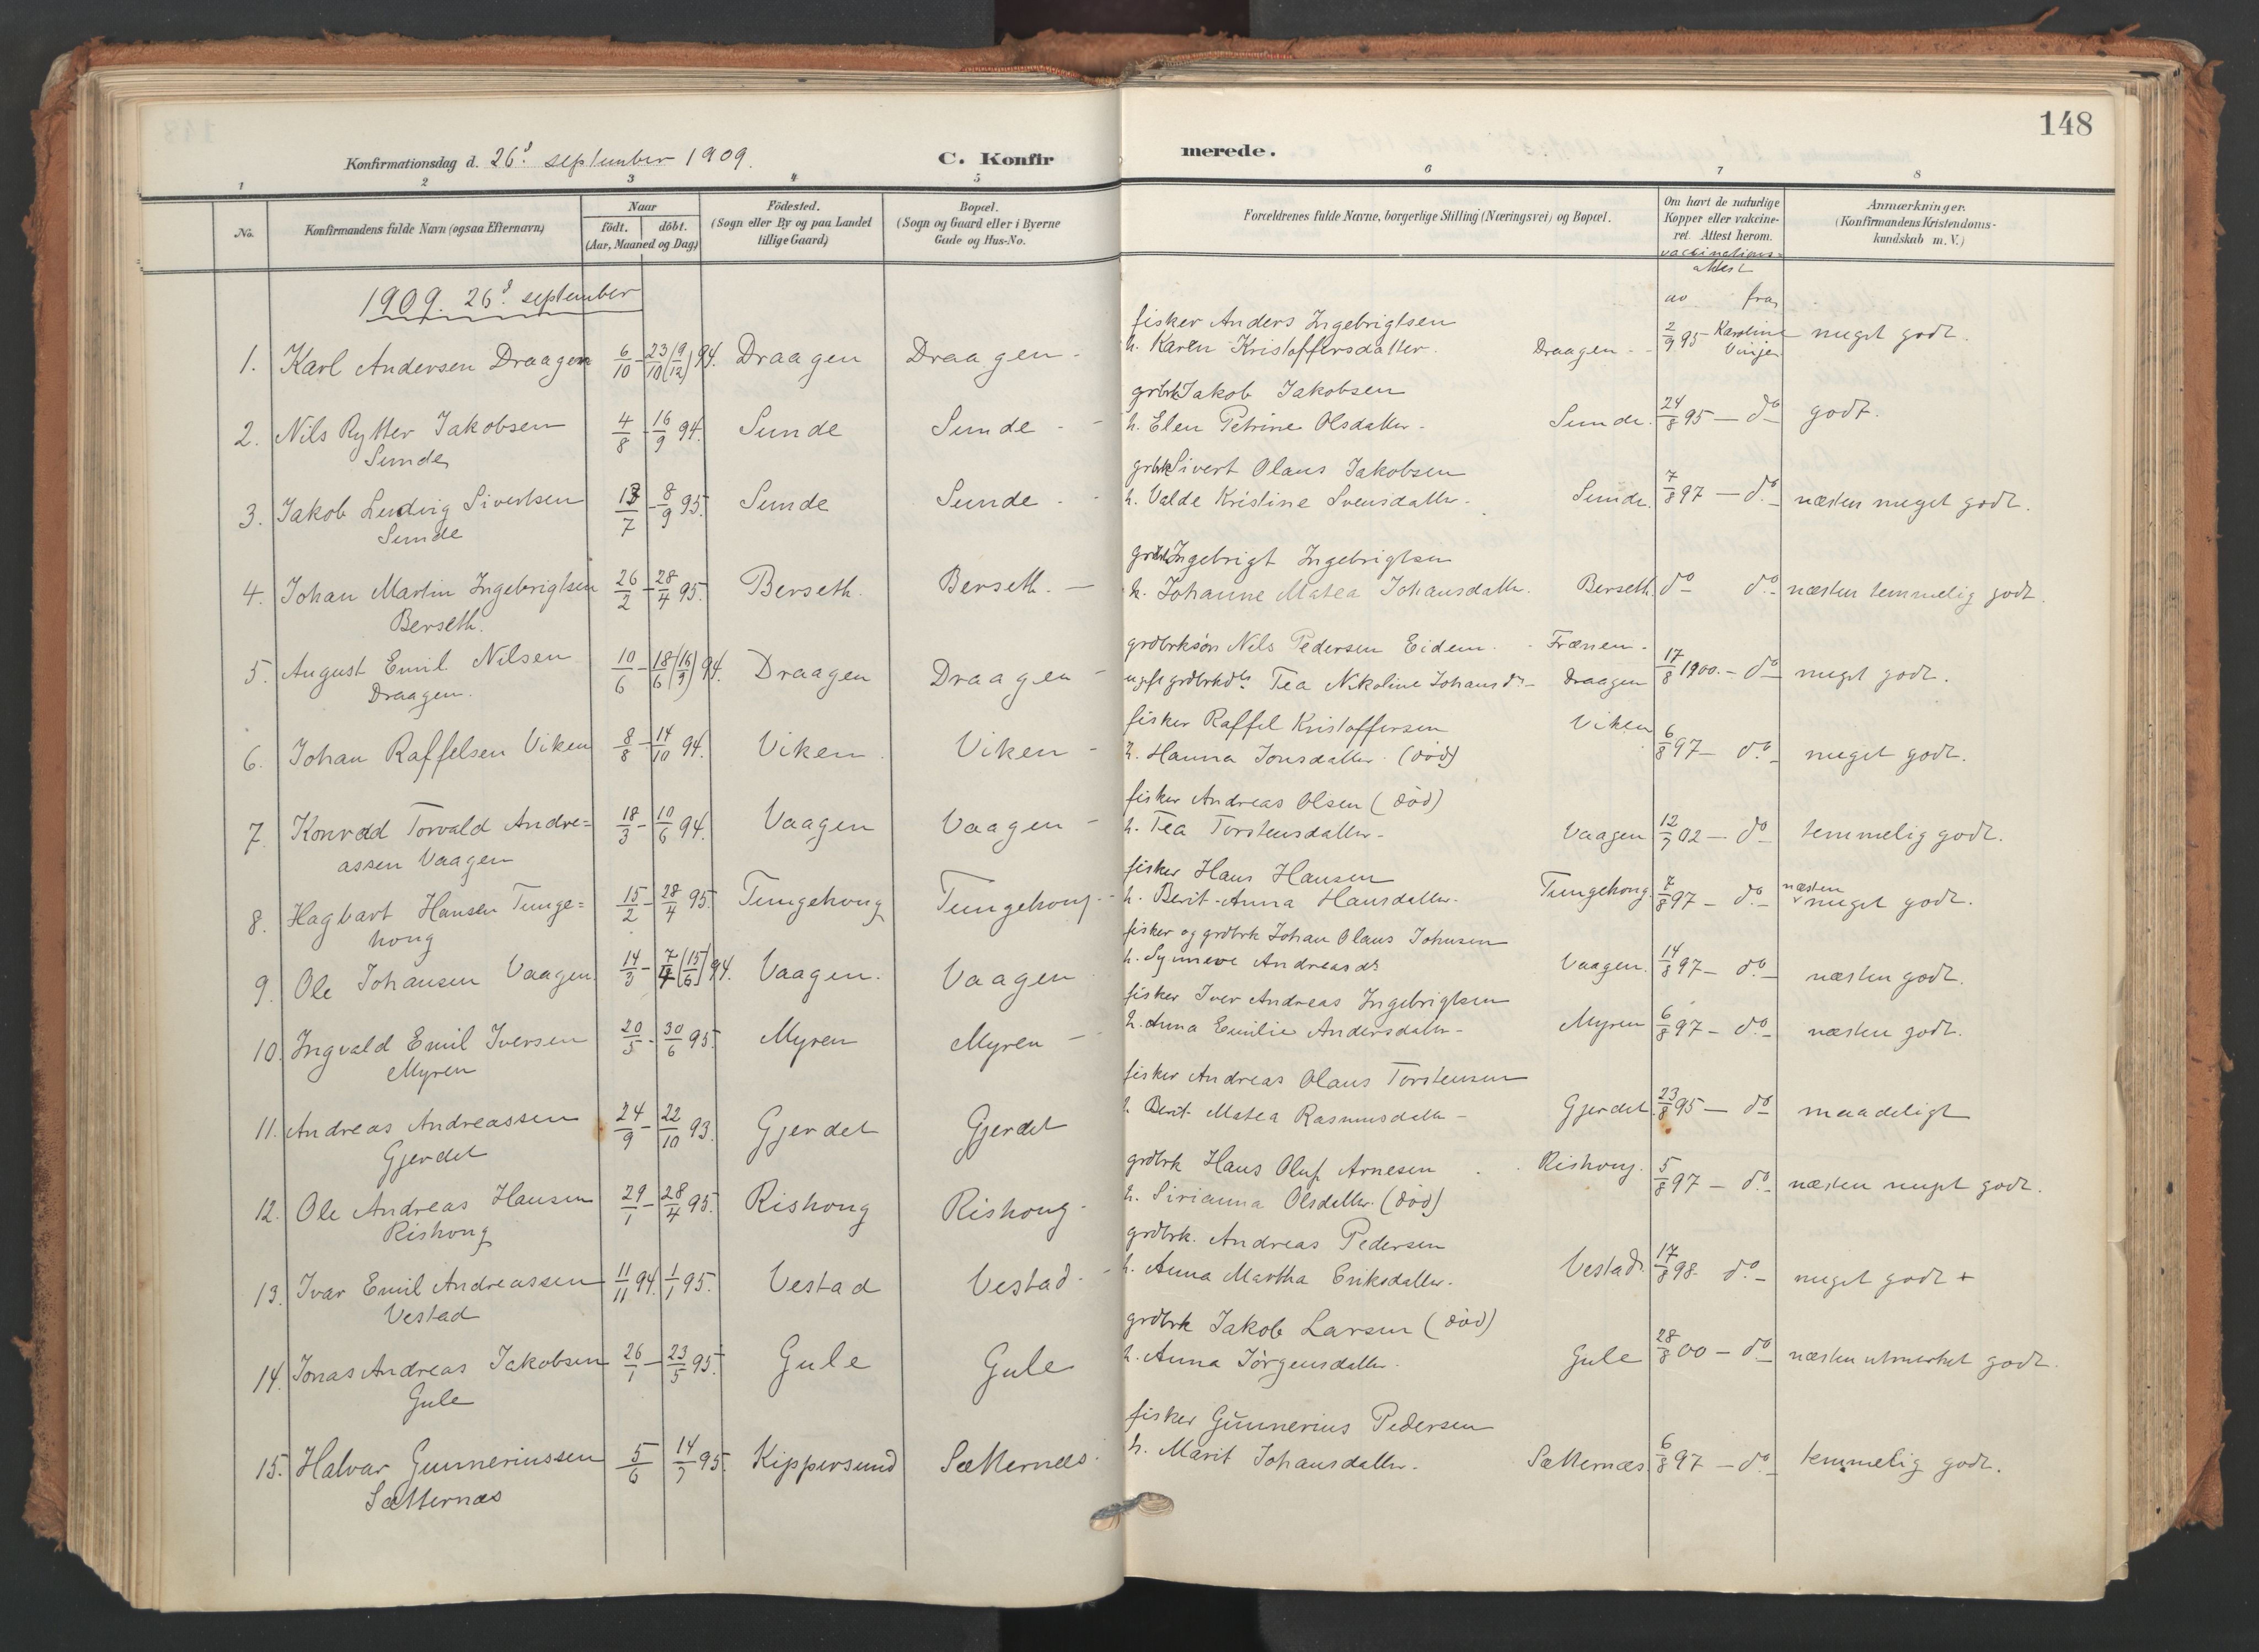 148
Konfirmationsdag d. 26d. september 1909.
C. Konfirmerede.
1 2 3 4 5 6 7 8
No.
Konfirmandens fulde Navn (ogsaa Efternavn)
Naar
födt. döbt.
(Aar, Maaned og Dag)
Födested.
(Sogn eller By og paa Landet
tillige Gaard)
Bopæl.
(Sogn og Gaard eller i Byerne
Gade og Hus-No.
Forældrenes fulde Navne, borgerlige Stilling (Næringsvei) og Bopæl.
Om havt de naturlige
Kopper eller vaccine-
ret. Attest herom.
vaccinations-
attest
av fra
Anmærkninger.
(Konfirmandens Kristendoms-
kundskab m. V.)
1909. 26d. september
fisker Anders Ingebrigtsen
1. Karl Andersen Draagen 6/10 - 23/10 (9/12) 94. Draagen Draagen - h. Karen Kristoffersdatter. Draagen - 2/9 95 - Karoline Vinje meget godt.
grbrk Jakob Jakobsen
2. Nils Rytter Jakobsen 4/8 - 16/9 94. Sunde Sunde - h. Elen Petrine Olsdatter - Sunde. 24/8 95 - do godt.
Sunde
grbrk Sivert Olaus Jakobsen
3. Jakob Ludvig Sivertsen 13/7 - 8/9 95. Sunde Sunde - h. Valde Kristine Svensdatter - Sunde. 7/8 97 - do næsten meget godt.
Sunde
grbrk Ingebrigt Ingebrigtsen
4. Johan Martin Ingebrigtsen 26/2 - 28/4 95. Berseth. Berseth. - h. Johanne Matea Johansdatter. Berseth. do do næsten temmelig godt.
Berseth.
grdbrksön Nils Pedersen Eidem - Frænen -
5. August Emil Nilsen 10/6 - 18/6 (16/9) 94. Draagen Draagen - ugift grdbrkdtr Tea Nikoline Johansdtr - Draagen 17/8 1900. - do meget godt.
Draagen.
fisker Raffel Kristoffersen Viken
6. Johan Raffelsen Viken 8/8 - 14/10 94. Viken. Viken - h. Hanna Jonsdatter. (död) 6/8 97 - do meget godt.
fisker Andreas Olsen (död)
7. Konrad Torvald Andre= 18/3 - 10/6 94. Vaagen Vaagen - h. Tea Torstensdatter - Vaagen 12/7 02 - do temmelig godt.
assen Vaagen
fisker Hans Hansen
8. Hagbart Hansen Tunge= 15/2 - 28/4 95. Tungehoug Tungehoug - h. Berit-Anna Hansdatter. Tungehoug. 7/8 97 - do næsten meget godt.
houg
fisker og grdbrk Johan Olaus Johnsen
9. Ole Johansen Vaagen. 14/3 - 7/4 (15/6) 94. Vaagen. Vaagen h. Synneve Andreasdr Vaagen. 14/8 97 - do næsten godt.
fisker Iver Andreas Ingebrigtsen
10. Ingvald Emil Iversen 20/5 - 30/6 95. Myren Myren - h. Anna Emilie Andersdatter - Myren 6/8 97 - do næsten godt.
Myren
fisker Andreas Olaus Torstensen
11. Andreas Andreassen 24/9 - 22/10 93. Gjerdet Gjerdet h. Berit Matea Rasmusdatter - Gjerdet. 23/8 95 - do maadeligt
Gjerdet
grdbrk Hans Oluf Arnesen - Rishoug.
12. Ole Andreas Hansen 29/1 - 28/4 95. Rishoug Rishoug - h. Sirianna Olsdatter. (död) 5/8 97 - do næsten meget godt.
Rishoug
grdbrk. Andreas Pedersen
13. Ivar Emil Andreassen 11/11 94. 1/1 95. Vestad Vestad - h. Anna Martha Eriksdatter. Vestad. 17/8 98. do meget godt +
Vestad
grdbrk Jakob Larsen (död)
14. Jonas Andreas Jakobsen 26/1 - 23/5 95. Gule Gule h. Anna Jörgensdatter. Gule 28/8 00 - do næsten utmerket godt.
Gule
fisker Gunnerius Pedersen
15. Halvar Gunneriussen 5/6 14/7 95. Kippersund Sætternæs. h. Marit Johansdatter. Sætternæs 6/8 97 - do temmelig godt.
Sætternæs